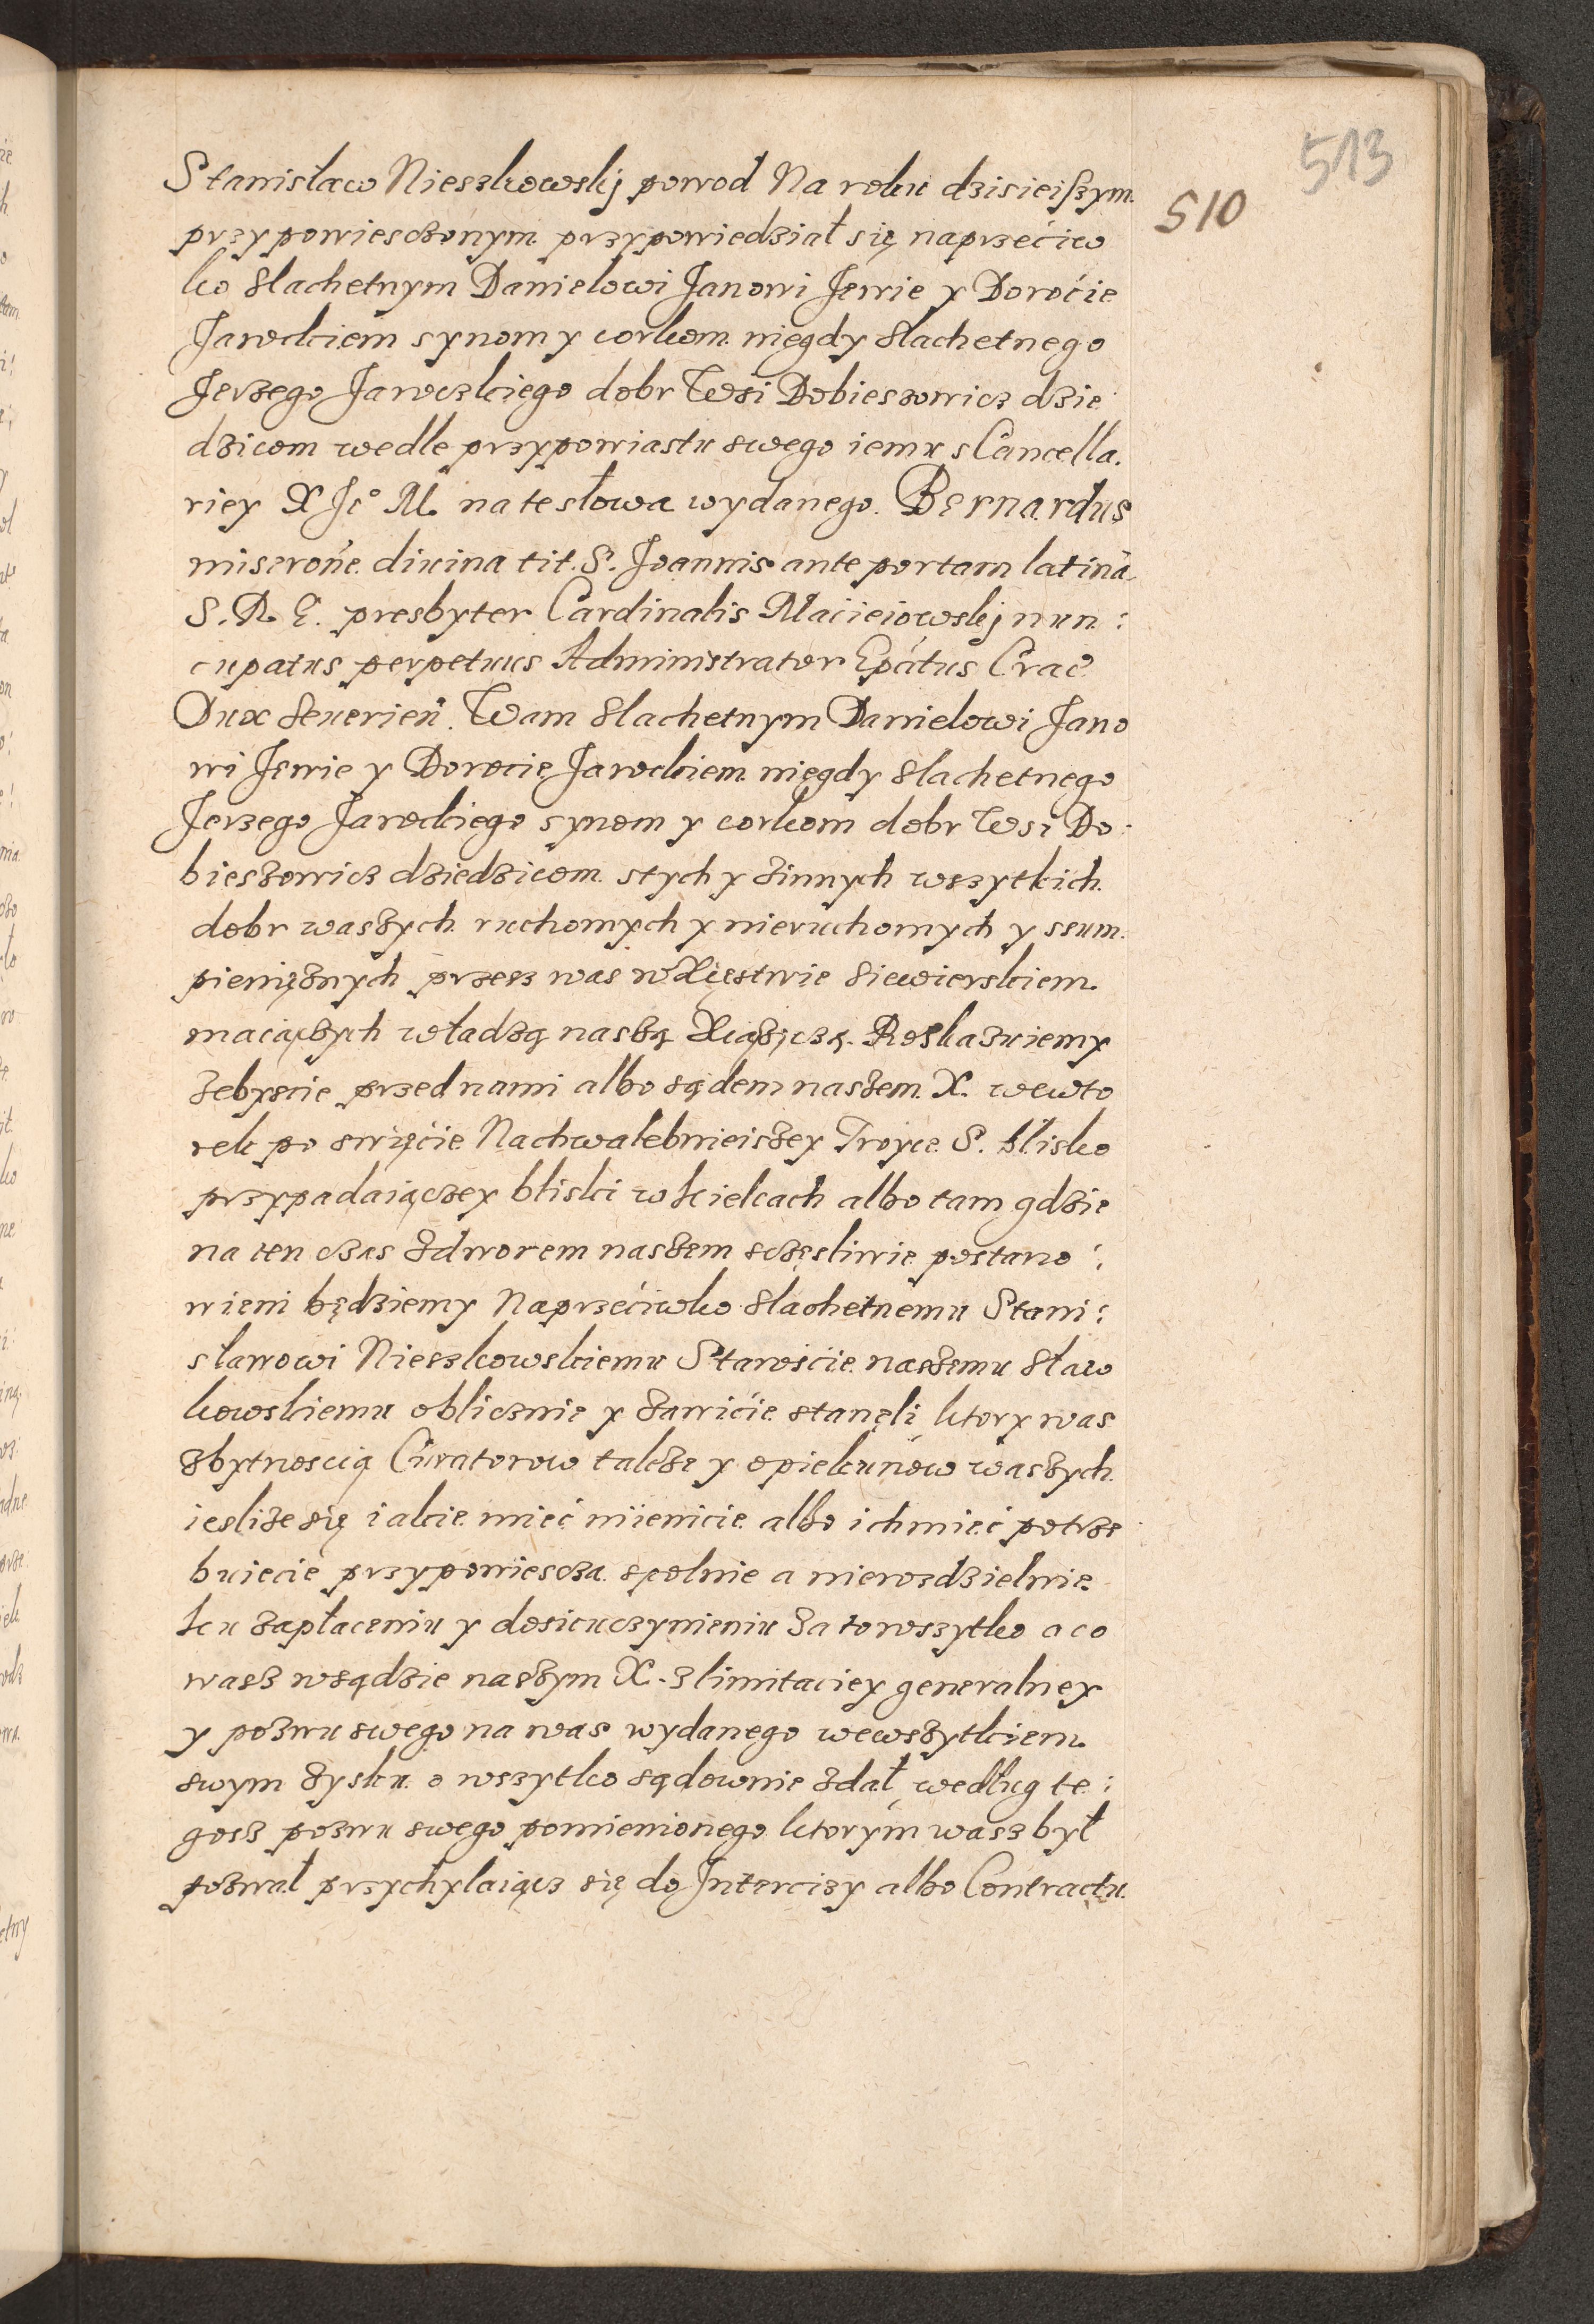 513
510
Stanisław Nieszkowskij powod Na roku dzisieiszym.
przypowiesczonym przypowiedział się naprzeciw
ko slachetnym Danielowi Janowi Jewie y Dorocie
Jarockiem synom y corkom niegdy slachetnego
Jerzego Jaroczkiego dobr Wsi Dobieszowicz dzie
dzicom wedle przypowiastu swego iemu s Cancella.
riey X Jᵒ M. na te słowa wydanego. Bernardus
miserone diuina tit. S. Joannis ante portam latina
S. R. E. presbyter Cardinalis Macieiowskij nun:
cupatus perpetuus Administrator Epatus Crac
Dux Seuerien. Wam slachetnym Danielowi Jano
wi Jewie y Dorocie Jarockiem niegdy slachetnego
Jerzego Jarockiego synom y corkom dobr Wsi Do:
bieszowicz dziedzicom stych y zinnych wszytkich
dobr waszych ruchomych y nieruchomych y ssum.
pieniężnych przesz was w Xięstwie Siewierskiem.
maiączych władzą naszą Xiążęczą. Roskazuiemy
żebyscie przed nami albo sądem naszem X. wewto
rek po swięcie Nachwalebnieiszey Troyce S. blisko
przypadaiączey bliski w Kielcach albo tam gdzie
na ten czas zdworem naszem sczęsliwie postano:
wieni będziemy Naprzeciwko slachetnemu Stani:
sławowi Nieszkowskiemu Staroscie naszemu Sław
kowskiemu oblicznie y zawicie stanęli ktory was
zbytnoscią Curatorow takze y opiekunow waszych
iesliże się iakie mieć mienicie albo ich mieć potrze
buiecie przypowiescza spolnie a nierozdzielnie
ku zapłaceniu y dosicuczynieniu za to wszytko o co
wasz wsądzie naszym X. z limitaciey generalney
y pozwu swego na was wydanego wewszytkiem
swym zysku o wszytko sądownie zdał według te:
gosz pozwu swego pomienionego ktorym wasz był
pozwał przychylaiącz się do Intercizy albo Contractu.